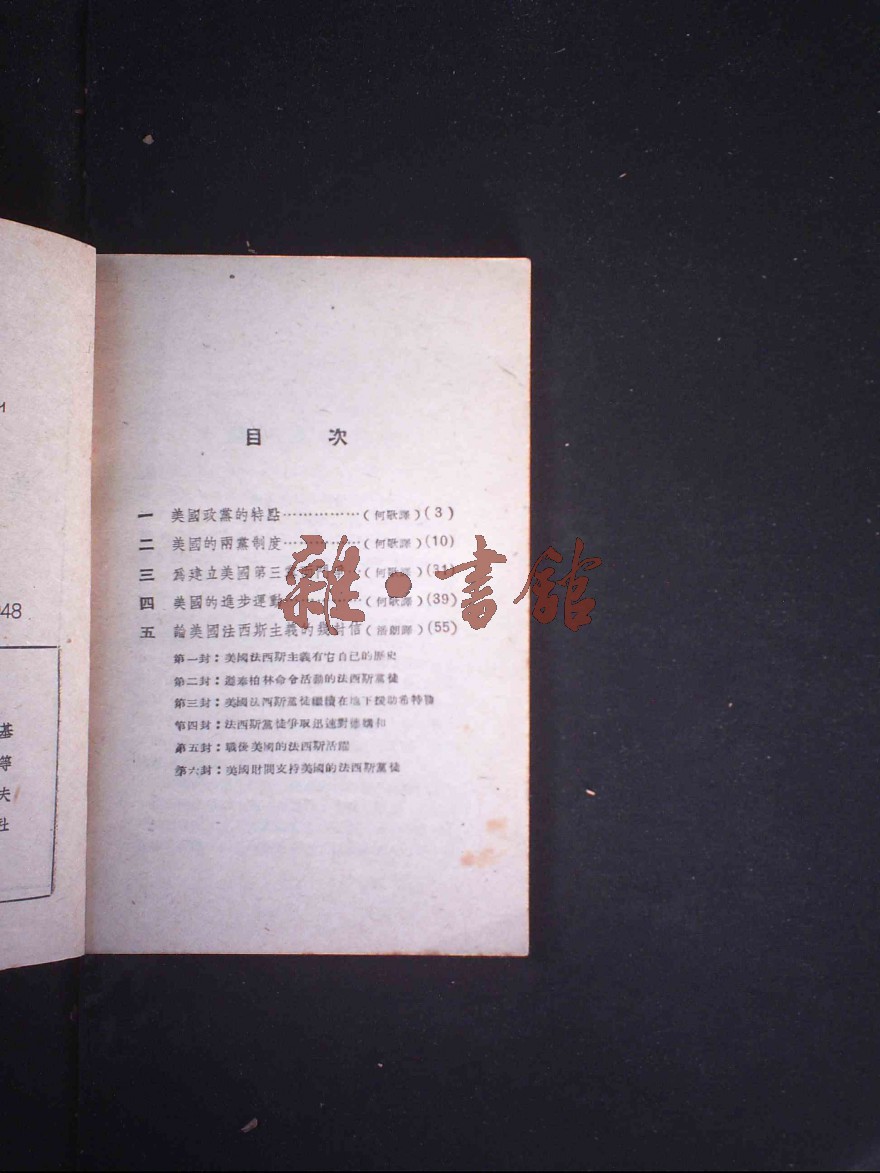 И
948
基
等
夫
社
目 次
一 美國政黨的特點……………(何歌譯)(3)
二 美國的兩黨制度……………(何歌譯)(10)
三 爲建立美國第三黨 (何歌譯)(31)
四 美國的進步運動 (何歌譯)(39)
五 論美國法西斯主義的幾封信 譯)(55)
第一封：美國法西斯主義有它自己的歷史
第二封：遵奉柏林命令活動的法西斯黨徒
第三封：美國法西斯黨徒繼續在地下援助希特勒
第四封：法西斯黨徒爭取迅速對德媾和
第五封：戰後美國的法西斯活躍
第六封：美國財閥支持美國的法西斯黨徒
雜·書館